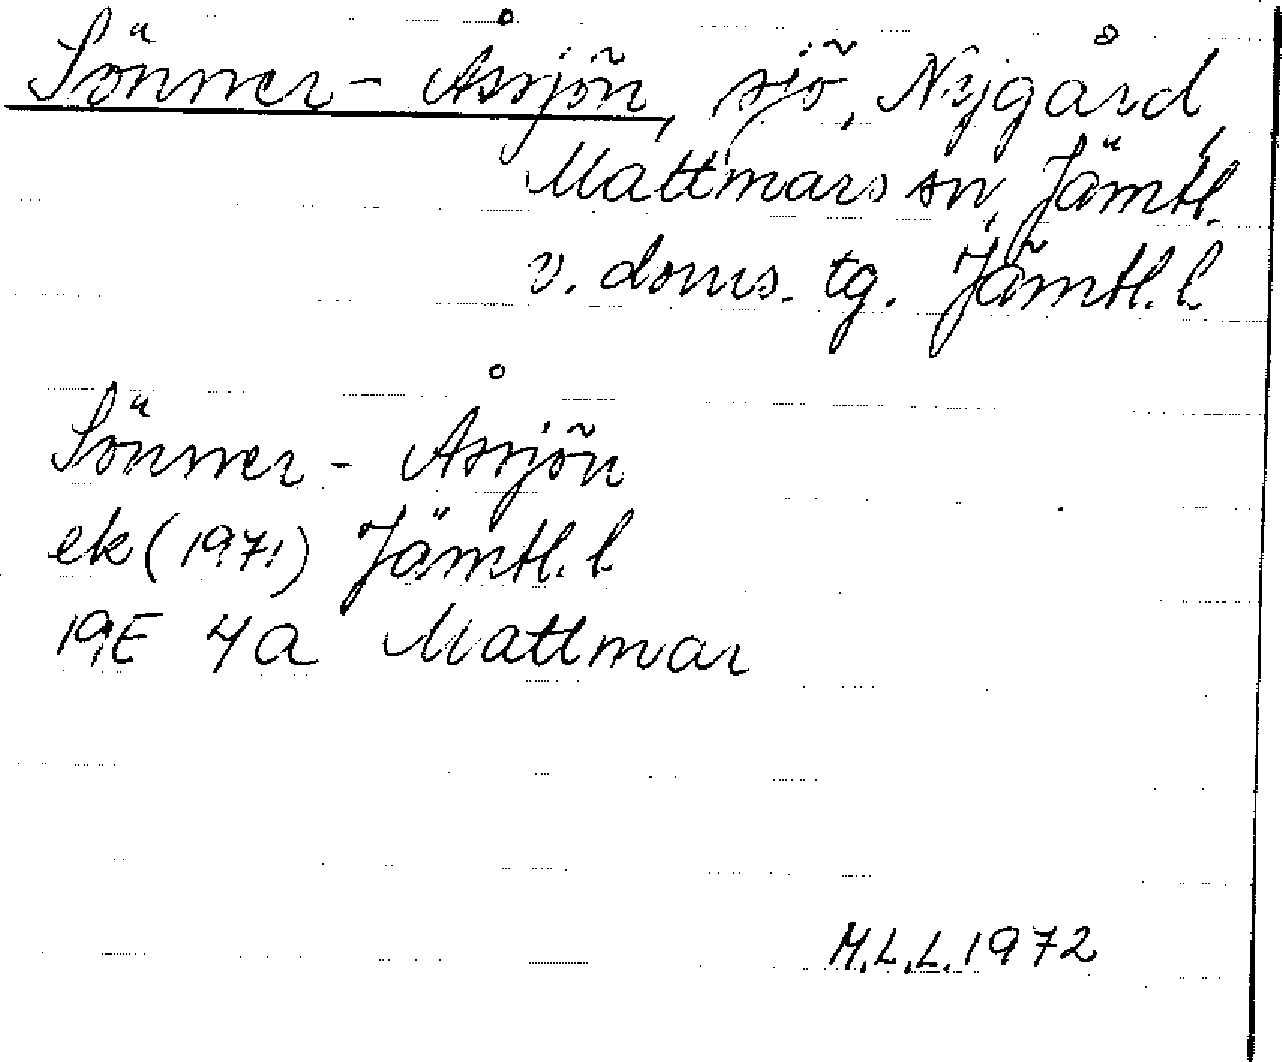 Sönner-Åssjön, sjö, Nygård,
Mattmars sn, Jämtl.
v. doms. tg. Jämtl. l
Sönner-Åssjön
ek (1971) Jämtl. l
19E 4a Mattmar
M.L.L. 1972